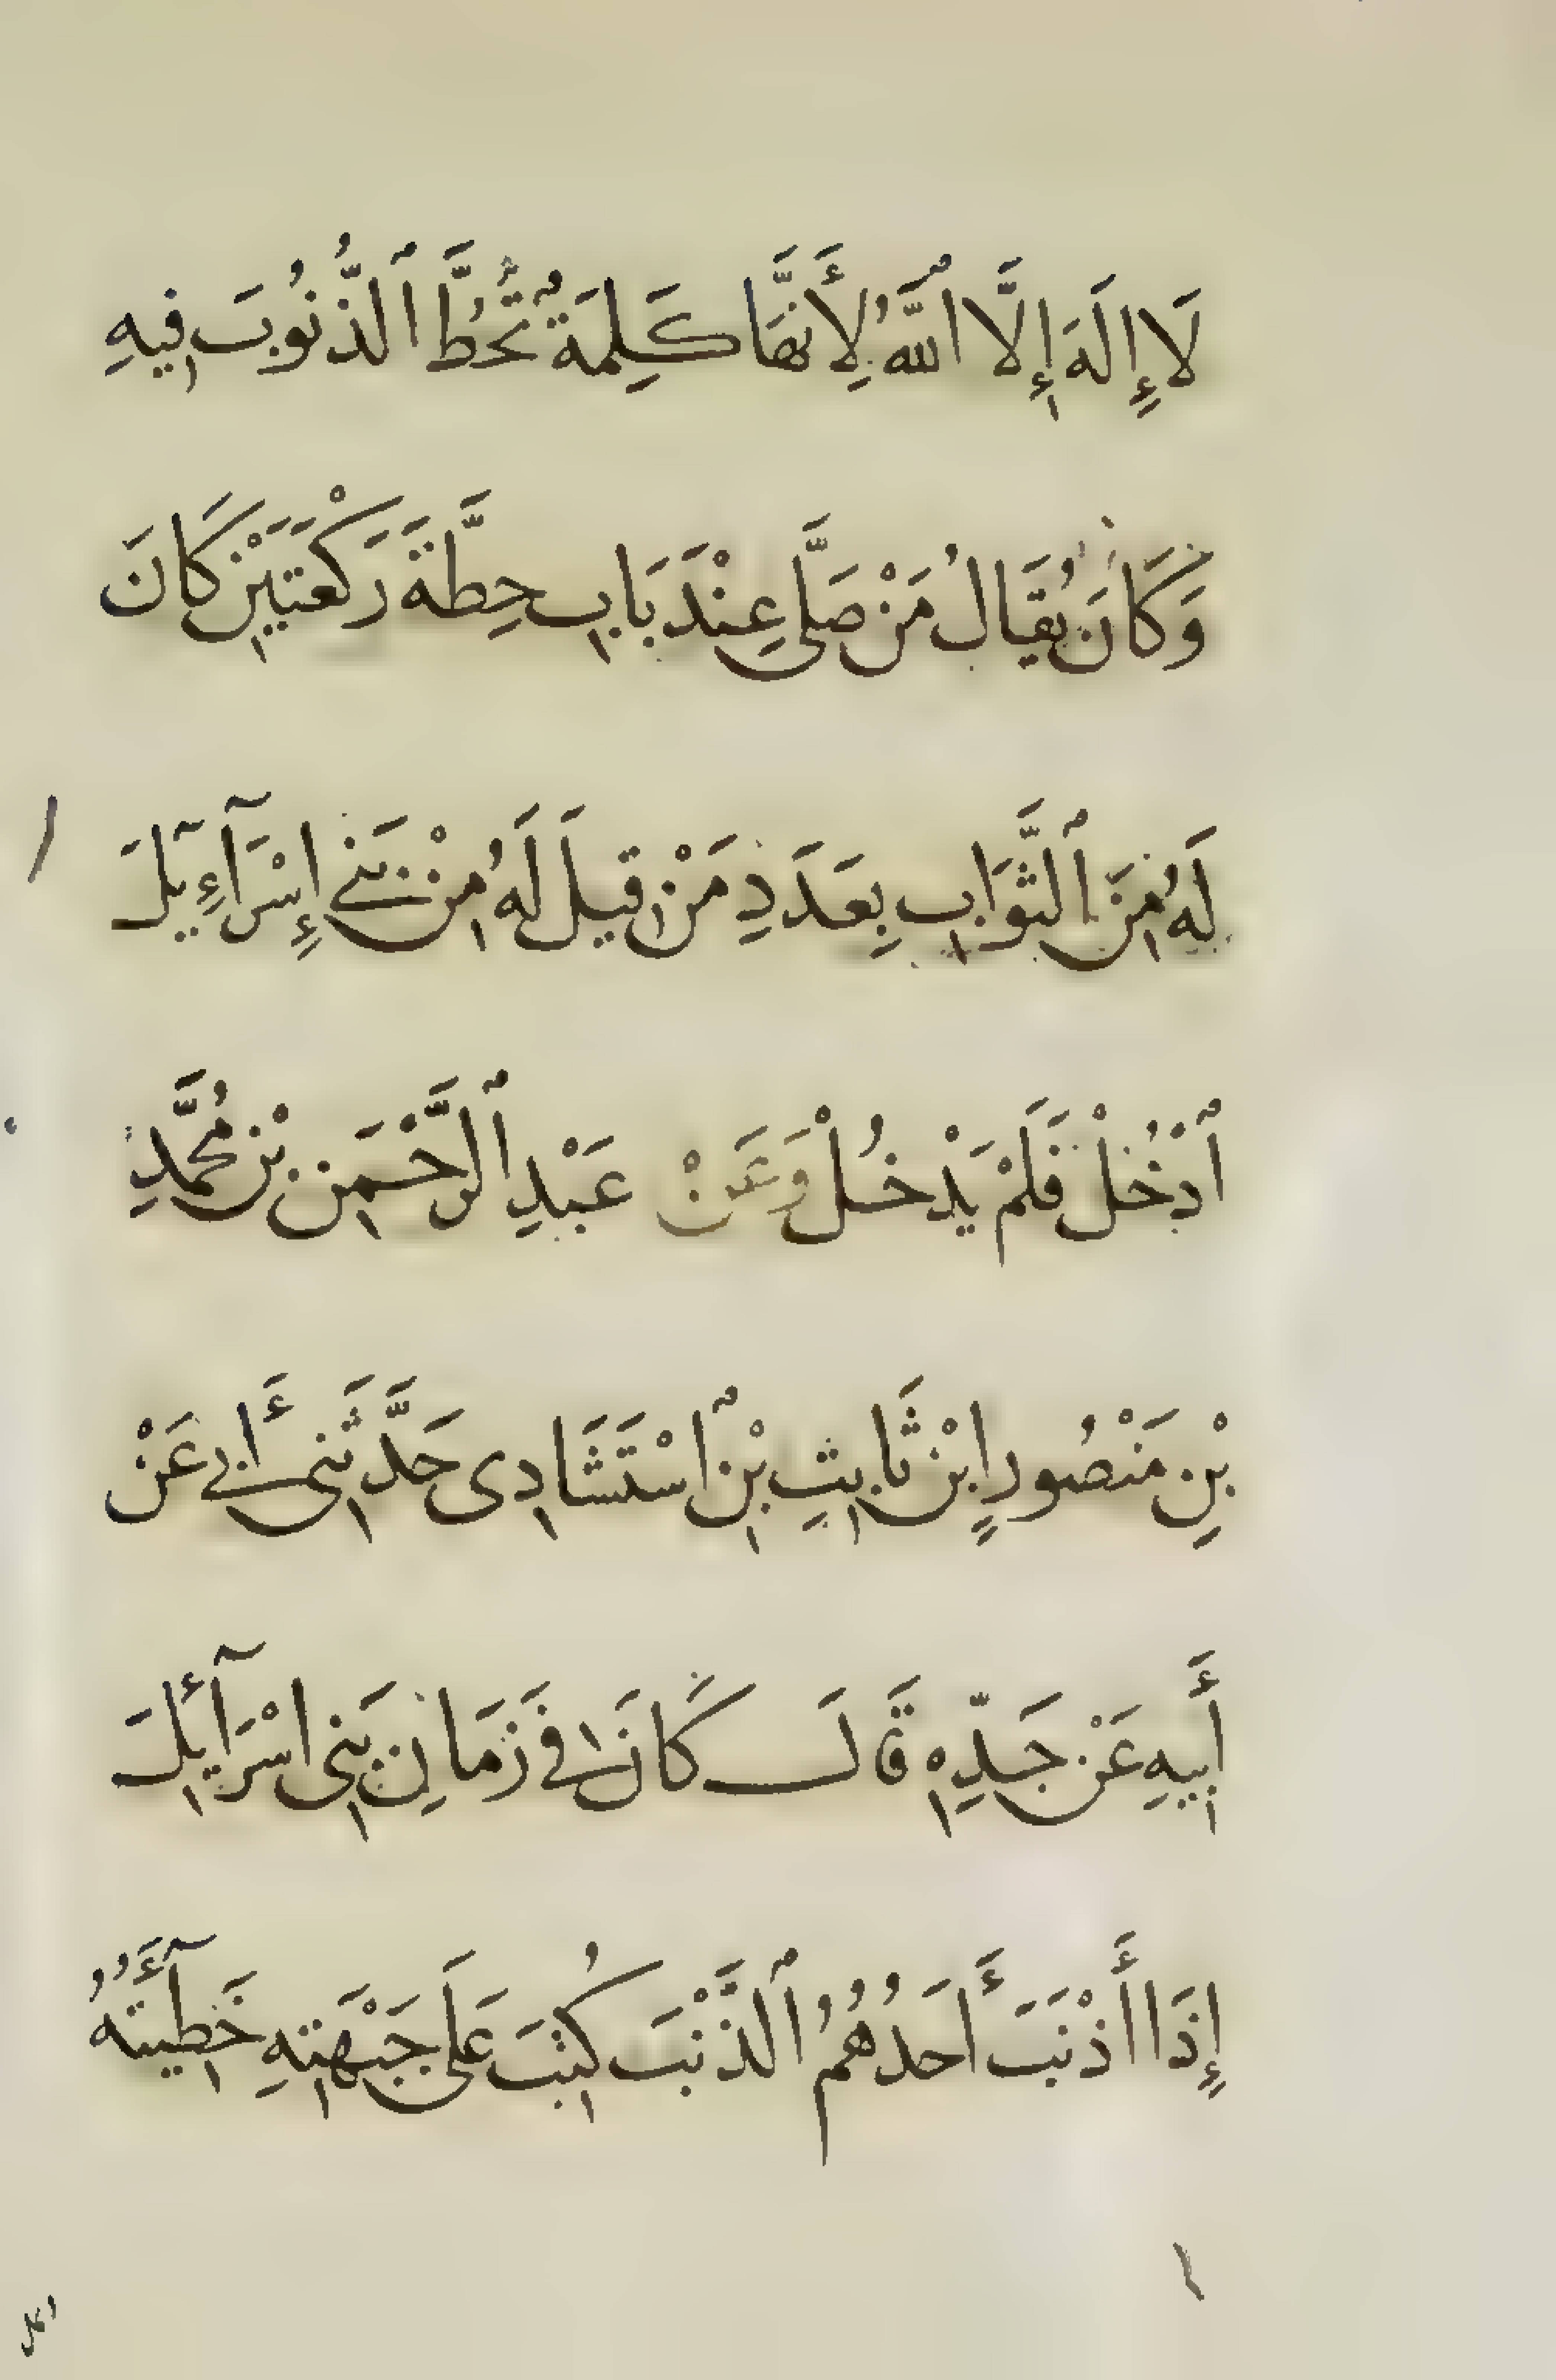 لَا إِلَهَ إِلَّا ٱللَّهُ لِأَنَّهَا كَلِمَةٌ تُحَطُّ ٱلذُّنُوبَ فِيهِ
وَكَانَ يُقَالُ مَنْ صَلَّى عِنْدَ بَابِ حِطَّةَ رَكْعَتَيْنِ كَانَ
لَهُ مِنَ ٱلثَّوَابِ بِعَدَدِ مَنْ قِيلَ لَهُ مِنْ بَنِي إِسْرَآءِيلَ
ٱدْخُلْ فَلَمْ يَدْخُلْ وَعَنْ عَبْدِ ٱلرَّحْمَنِ بْنِ مُحَمَّدِ
بْنِ مَنْصُورٍ ابْنِ ثَابِتِ بْنِ ٱسْتَشَادِى حَدَّثَنِى أَبِي عَنْ
أَبِيهِ عَنْ جَدِّهِ قَالَ كَانَ فِي زَمَانِ بَنِى اسْرَآئِيلَ
إِذَا أَذْنَبَ أَحَدُهُمُ ٱلذَّنْبَ كُتِبَ عَلَى جَبْهَتِهِ خَطِيئَتُهُ